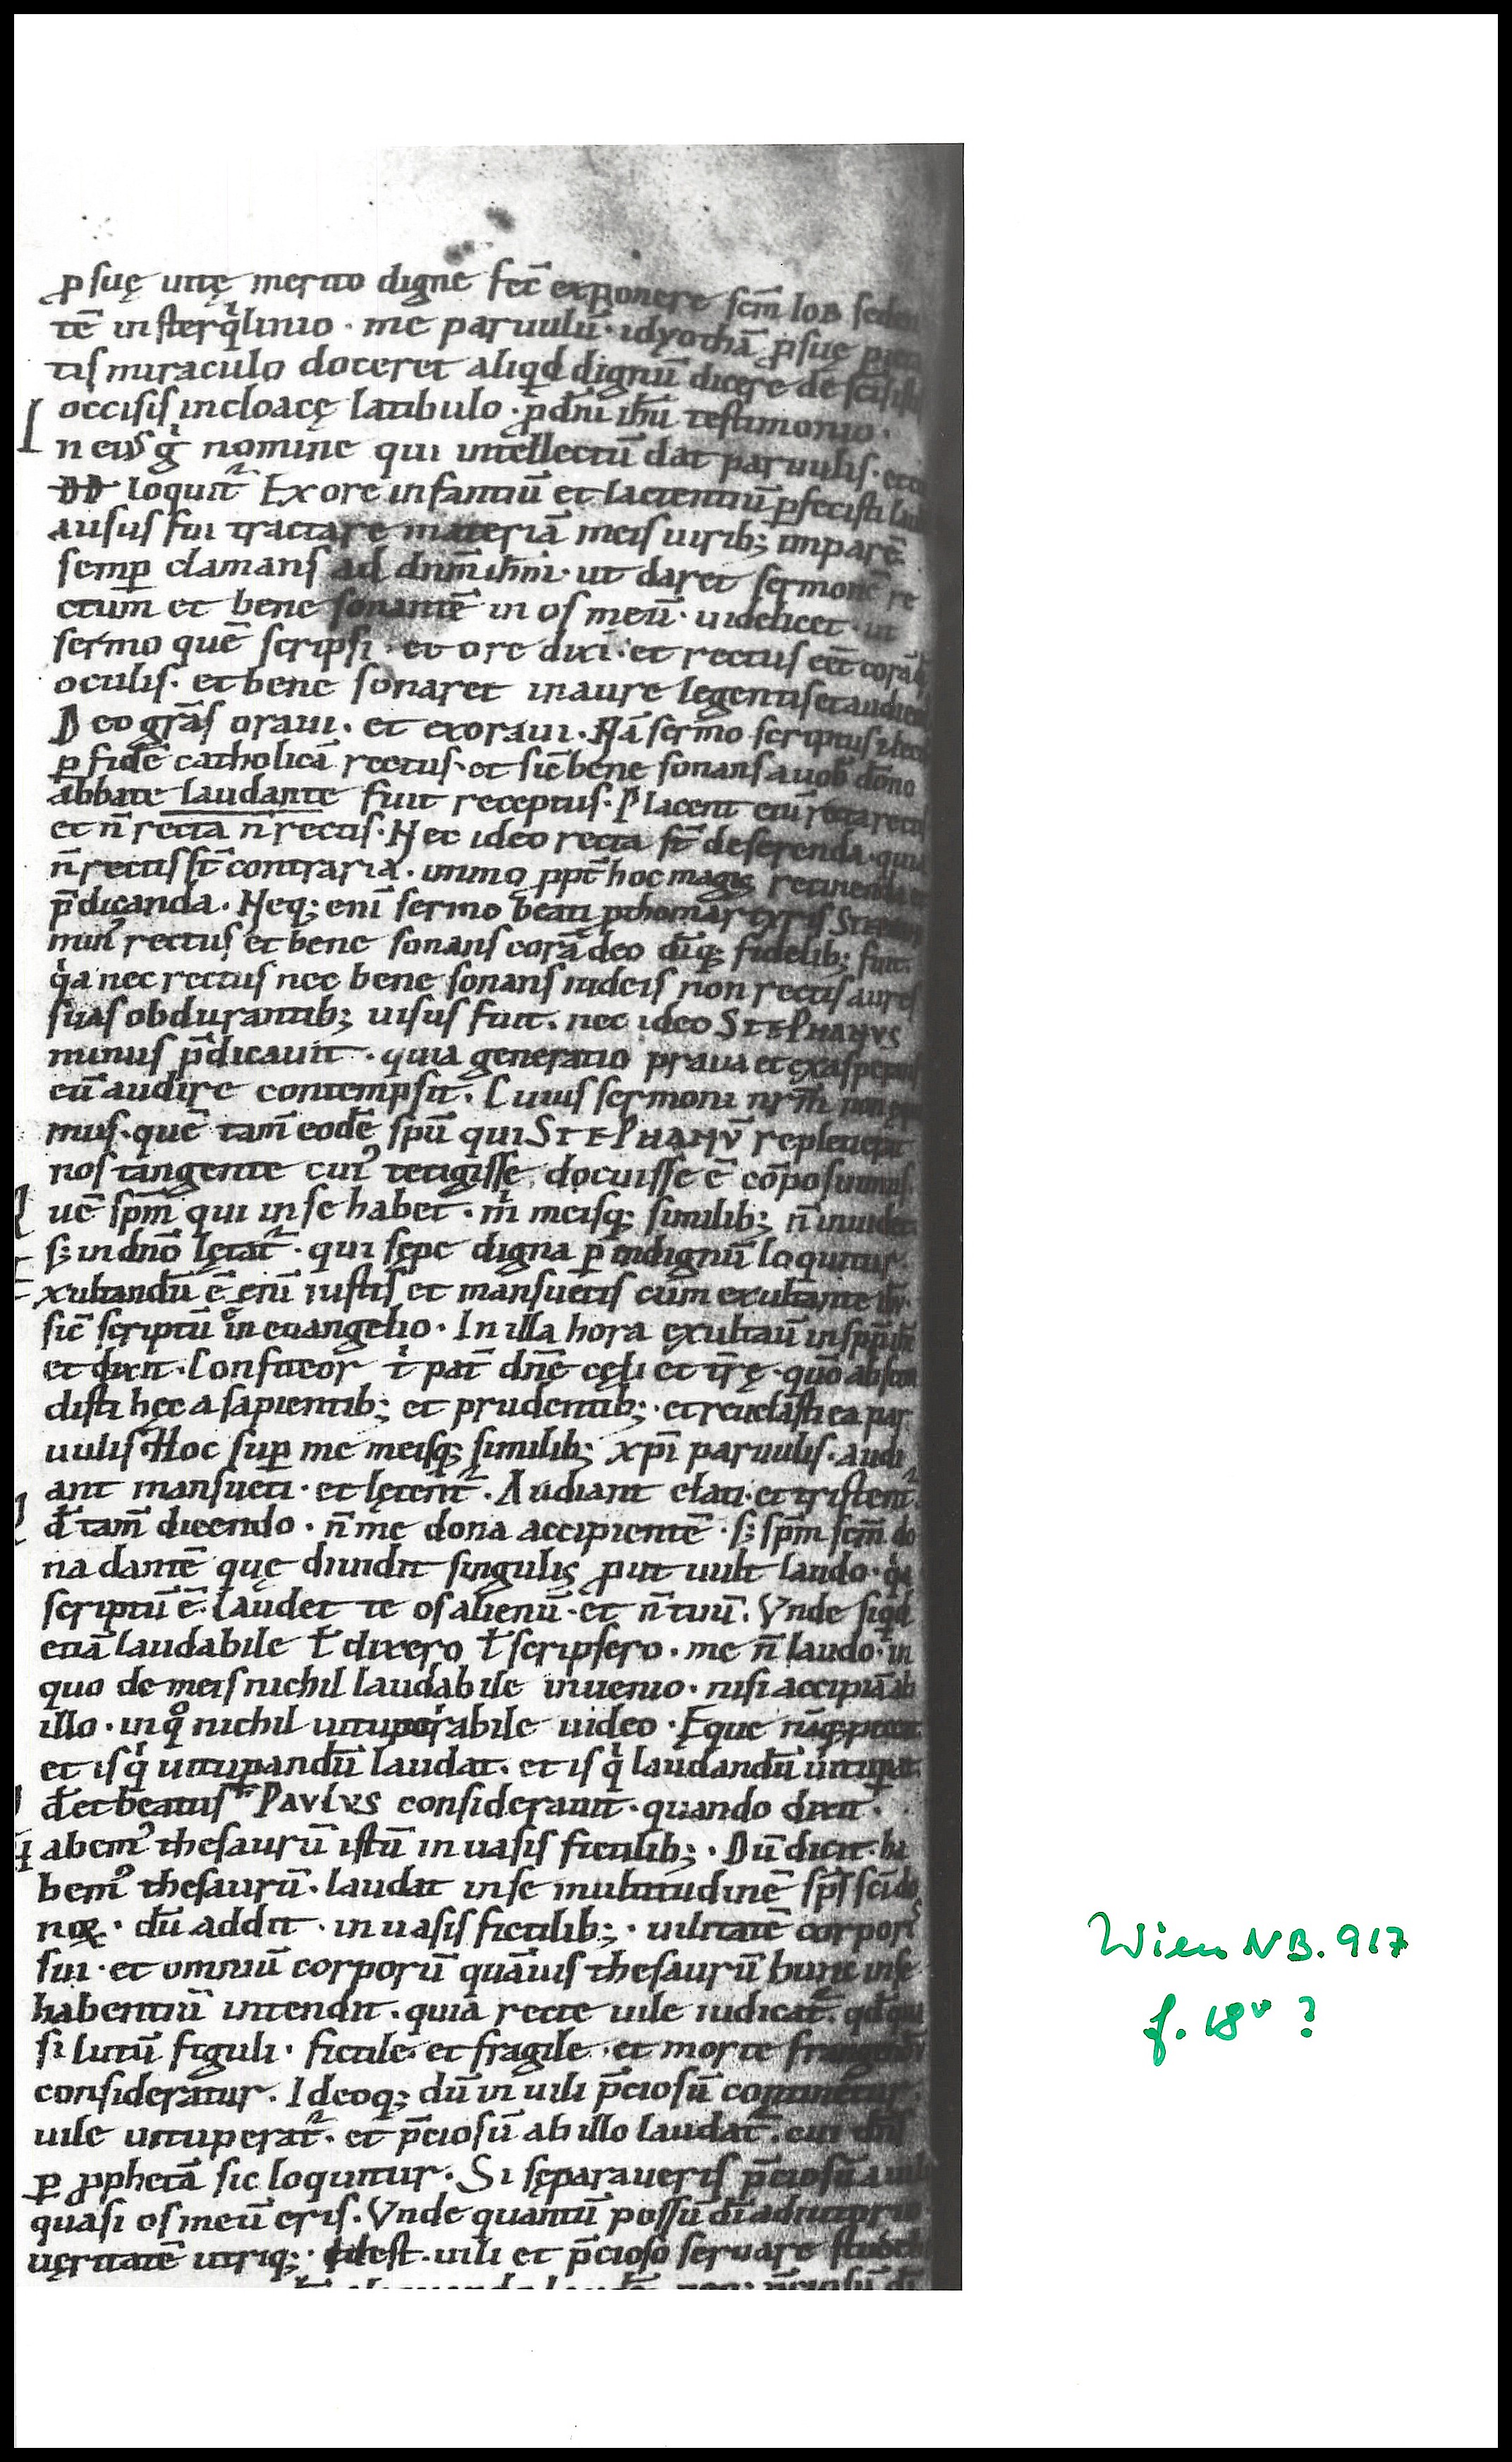 ꝑ suę uitę merito digne fec̄ exponere scm̄ IOB seden
tē in sterqͥlinio · me paruulū · idyothā ꝓ suę pieta
tis miraculo doceret aliqͥd dignū dicere de scīs
occisis in cloacę latibulo · ꝓ dn̄i ih̄u testimonio ·
In eiꝰ gͥ nomine qui intellectū dat paruulis ·
DD loquit᷑ Ex ore infantiū et lactentiū ꝑfecisti
ausus fui tractare materiā meis uirib; imparē
semꝑ clamans ad dnm̄ ih̄m · ut daret sermonē re
ctum̄ et bene sonantē in os meū · uidelicet · ut
sermo quē scripsi · et ore dixi · et rectus eēt corā
oculis · et bene sonaret in aure legentis et audien
Deo grās oraui · et exoraui · Nā sermo scriptus
ꝑ fidē catholicā rectus · et sic̄ bene sonans a uob̄ dōno
abbate laudante fuit receptus · Placent eni᷑ recta rectis
et n̄ recta n̄ rectis · Nec ideo recta st̄ deserenda · quia
n̄ rectis st̄ contraria · immo ꝓpt̄ hoc magis retinenda et
p̄dicanda · Neq; eni᷑ sermo beati ꝓthomartyris STEPHANI
minꝰ rectus et bene sonans corā deo eiꝰq; fidelib; fuit
qͥa nec rectus nec bene sonans iudeis non rectis aures
suas obdurantib; uisus fuit · nec ideo STEPHANVS
minus p̄dicauit · quia generatio praua et exasperans
eū audire contempsit · Cuius sermoni nr̄m non
mus · quē tam̄ eodē spū qui STEPHANV̄ repleuerat
nos tangente cuiꝰ tetigisse docuisse ē cōposuimus.
uē spm̄ qui in se habet · m̄ meisq; similib; n̄ inuidet
s; in dn̄o lętat᷑ · qui sępe digna ꝑ indignū loquitur
Exultandū ē eni᷑ iustis et mansuetis cum exultante
sic̄ scriptū ē in euangelio · In illa hora exultauit̄ in spū
et dixit · Confiteor tͥ pat̄ dn̄e cęli et tr̄ę · quō abscon
disti hęc a sapientib; et prudentib; · et reuelasti ea par
uulis Hoc suꝑ me meisq; similib; xp̄i paruulis · audi
ant mansueti · et lętent᷑ · Audiant elati · et tristent᷑
qd̄ tam̄ dicendo · n̄ me dona accipientē · s; spm̄ scm̄ do
na dantē quę diuidit singulis ꝓut uult laudo · qͥa
scriptū ē · Laudet te os alienū · et n̄ tuū · Vnde siqͥd
etiā laudabile ł dixero ł scripsero · me n̄ laudo · in
quo de meis nichil laudabile inuenio · nisi accipiā ab
illo · in qͦ nichil uituperabile uideo · Ęque
et is qͥ uituꝑandū laudat · et is qͥ laudandū uituꝑat ·
qd̄ et beatus PAVLVS considerauit · quando dixit ·
Habemꝰ thesaurū istū in uasis fictilib; · Dū dicit · ha
bemꝰ thesaurū · laudat in se multitudinē sp̄s scī do
noꝝ · dū addit · in uasis fictilib; · uilitatē corporis
sui · et omniū corporū quāuis thesaurū hunc in se
habentiū intendit · quia recte uile iudicat᷑ · qd̄
si lutū figuli · fictile et fragile · et morte frangendū
consideratur · Ideoq; dū in uili p̄ciosū continetur ·
uile uituperat᷑ · et p̄ciosū ab illo laudat᷑ · cui dn̄s
ꝑ ꝓphetā sic loquitur · Si sęparaueris p̄ciosū a uili
quasi os meū eris · Vnde quantū possū dī adiutorio
ueritatē utriq; · idest · uili et p̄cioso seruare
Wien NB. 917
f. 18ᵛ ?